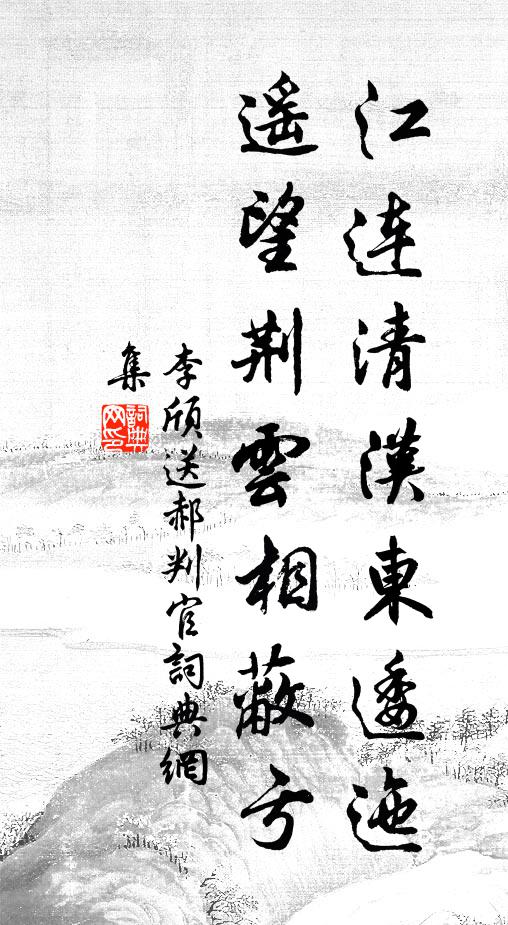 江連清漢東逶迤
遙望荆雲相蔽亏
李頎送郝判官詞典網
集
詞典
网印